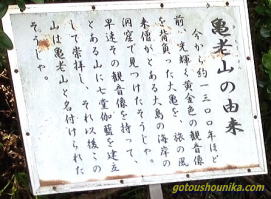 亀老山の由来
今から約一三〇〇年ほど
前、光輝く黄金色の観音像
を背負った大亀を、旅の風
来僧がとある大島の海岸の
洞窟で見つけたそうじゃ。
早速その観音像を持って、
とある山に七堂伽藍を建立
して崇拝し、それ以後この
山は亀老山と名付けられた
そうじゃ。
gotoushounika.com